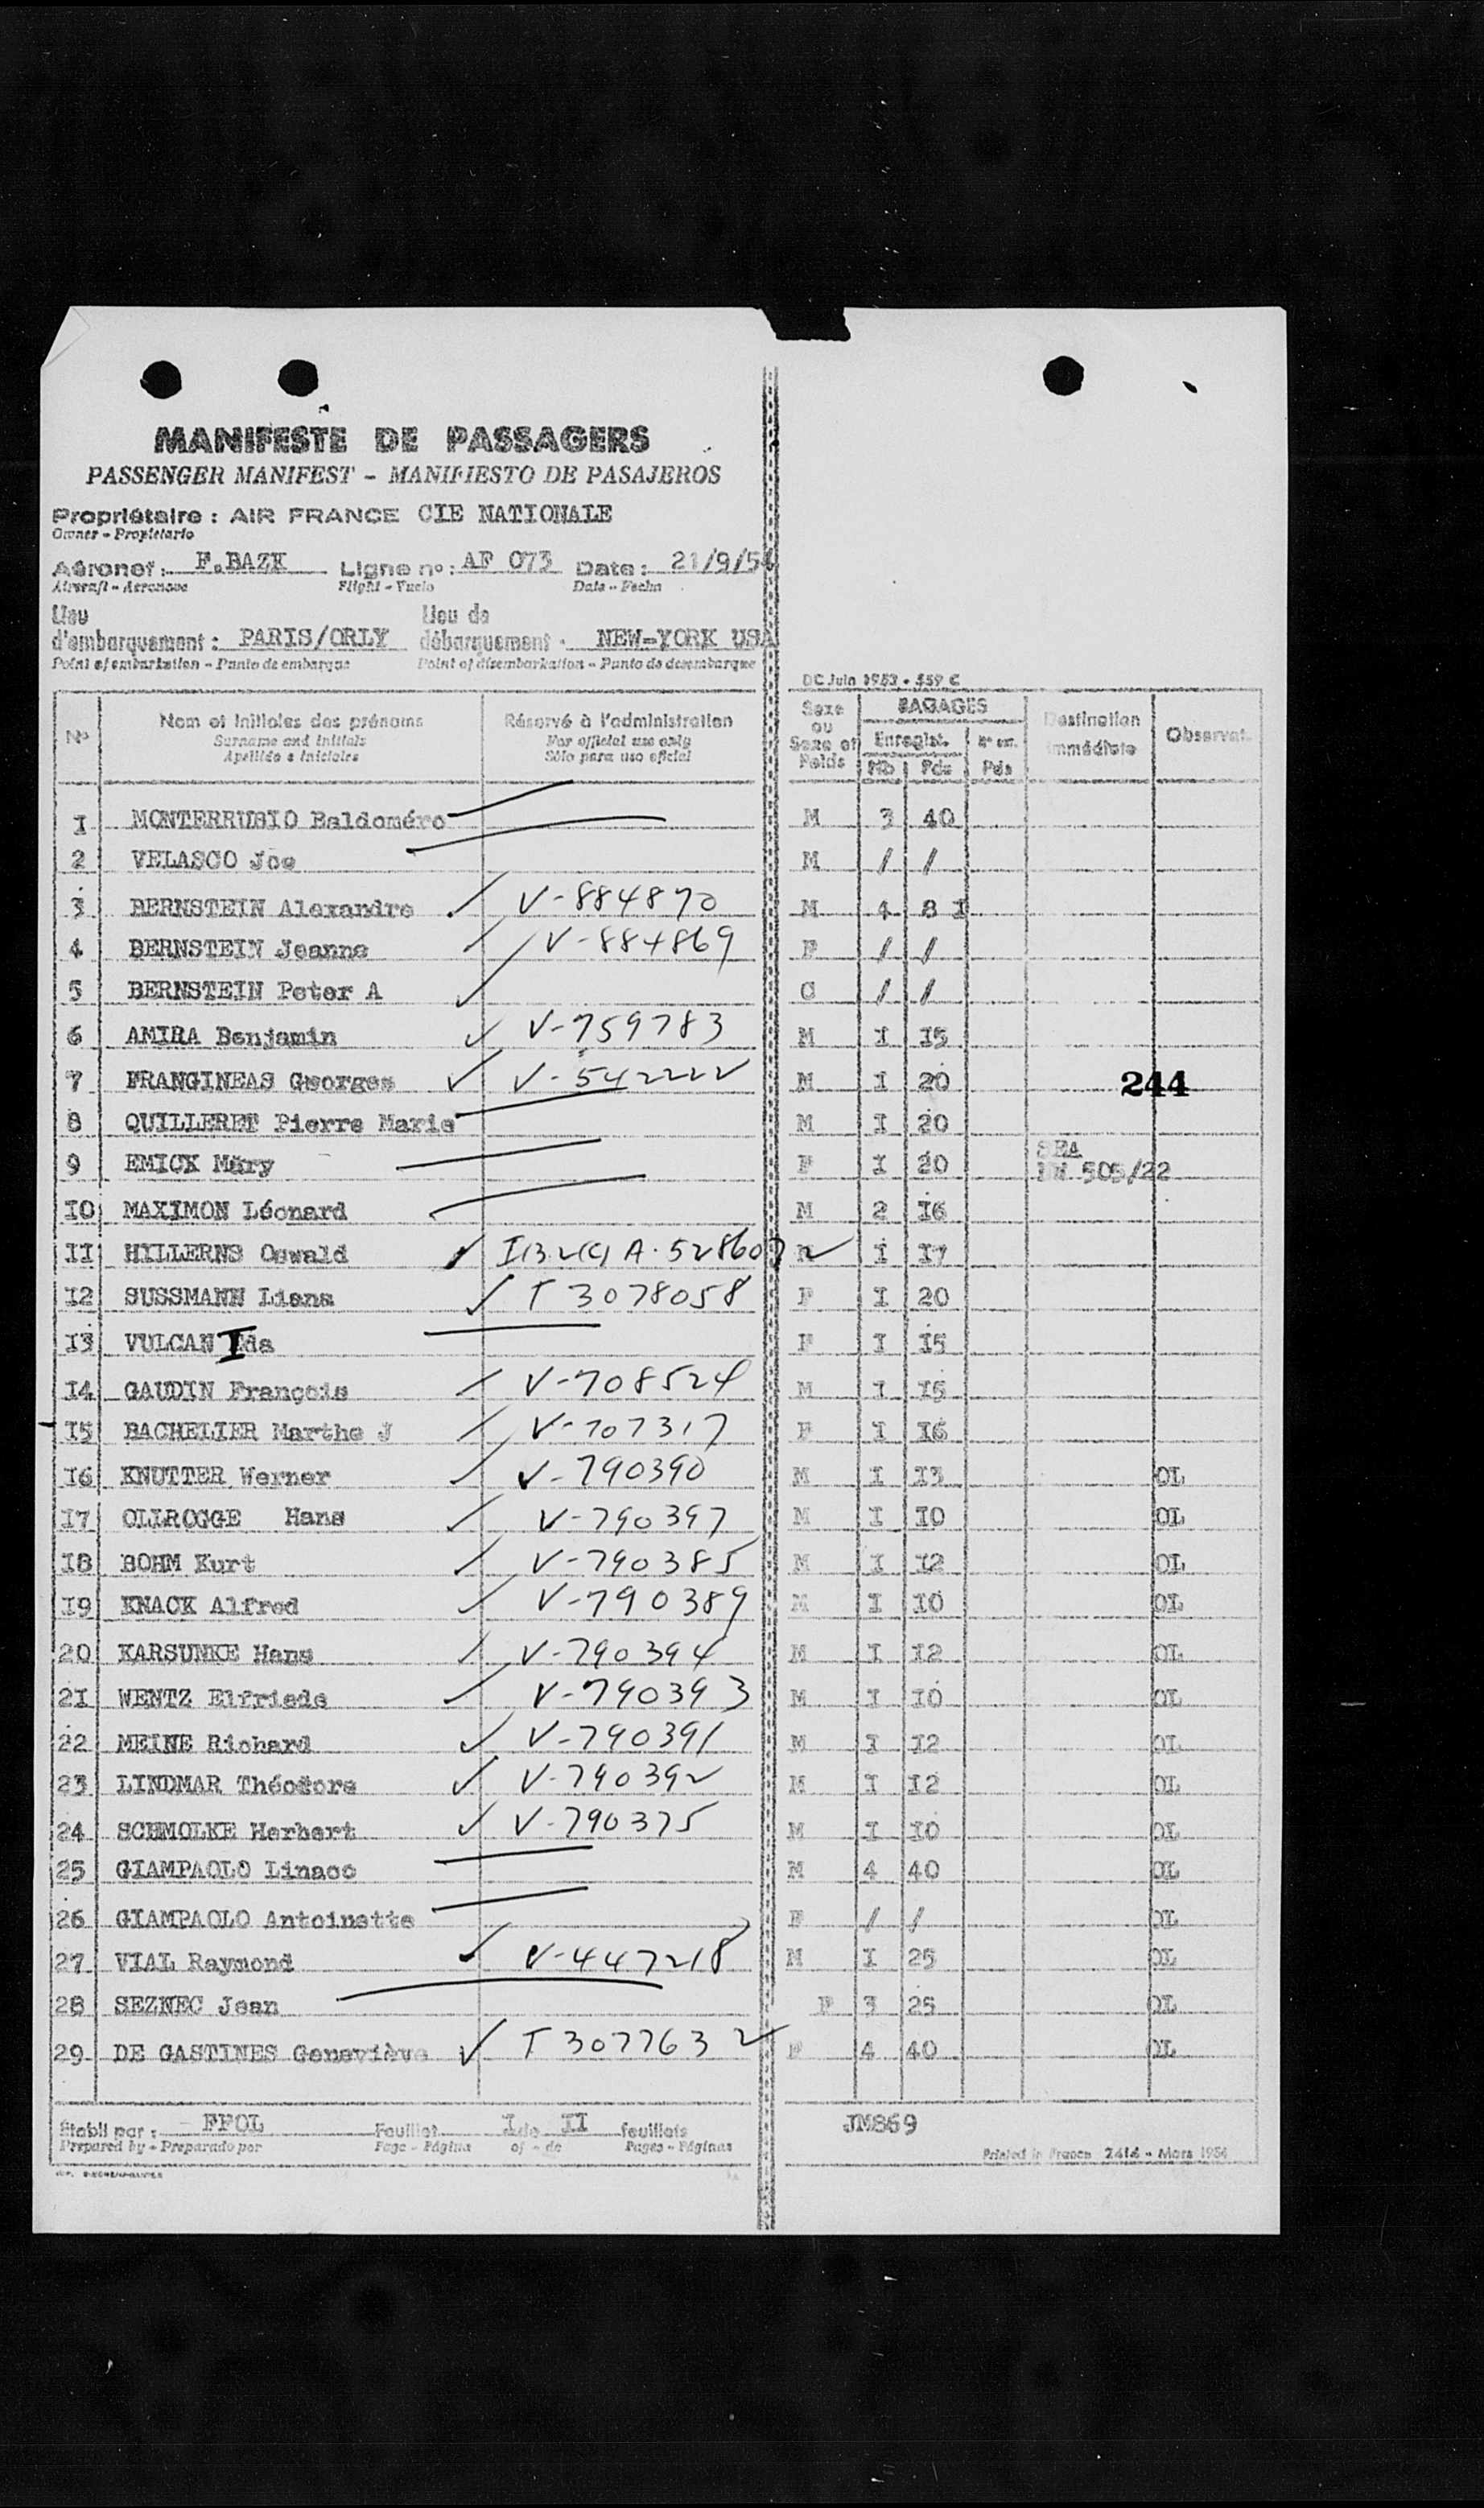 MANIFESTE DE PASSAGERS
PASSENGER MANIFEST - MANIFIESTO DE PASAJEROS
Propriétaire : AIR FRANCE CIE NATIONALE
Owner - Propietario
Aéronef : F.BAZK Ligne no : AF 073 Date : 21/9/54
Aircraft - Aeronave Flight - Vuelo Date - Fecha
Lieu Lieu de
d'embarquement : PARIS/ORLY débarquement : NEW-YORK USA
Point of embarkation - Punto de embarque Point of disembarkation - Punto de desembarque
DC Juin 1953 - 559 C
No Nom et initiales des prénoms Réservé à l'administration Sexe ou Sexe et Poids BAGAGES Destination immédiate Observat.
Surname and initials For official use only Enregist. Nº en.
Apellido e iniciales Sólo para uso oficial Nb Pds Pds
I MONTERRUBIO Baldoméro M 3 40
2 VELASCO Joe M / /
3 BERNSTEIN Alexandre V-884870 M 4 8 I
4 BERNSTEIN Jeanne V-884869 F / /
5 BERNSTEIN Peter A C / /
6 AMIRA Benjamin V-759783 M I I5
7 FRANGINEAS Georges V-542222 M I 20
244
8 QUILLERET Pierre Marie M I 20
9 EMICK Mary F I 20 SEA
505/22
I0 MAXIMON Léonard M 2 I6
II HILLERNS Oswald A-528607 M I I7
I2 SUSSMANN Liena T 3078058 F I 20
I3 VULCAN Ida F I I5
I4 GAUDIN François V-708524 M I I5
I5 BACHELIER Marthe J V-707317 F I I6
I6 KNUTTER Werner V-790390 M I I3 OL
I7 OLLROGGE Hans V-790397 M I I0 OL
I8 BOHM Kurt V-790385 M I I2 OL
I9 KNACK Alfred V-790389 M I I0 OL
20 KARSUNKE Hans V-790394 M I I2 OL
2I WENTZ Elfriede V-790393 M I I0 OL
22 MEINE Richard V-790391 M I I2 OL
23 LINDMAR Théodore V-790392 M I I2 OL
24 SCHMOLKE Herbert V-790375 M I I0 OL
25 GIAMPAOLO Linaco M 4 40 OL
26 GIAMPAOLO Antoinette F / / OL
27 VIAL Raymond V-447218 M I 25 OL
28 SEZNEC Jean F 3 25 OL
29 DE GASTINES Geneviève T 3077632 F 4 40 OL
Etabli par : FPOL Feuillet I de II feuillets JM869
Prepared by - Preparado por Page - Página of - de Pages - Páginas
Printed in France 2414 - Mars 1954